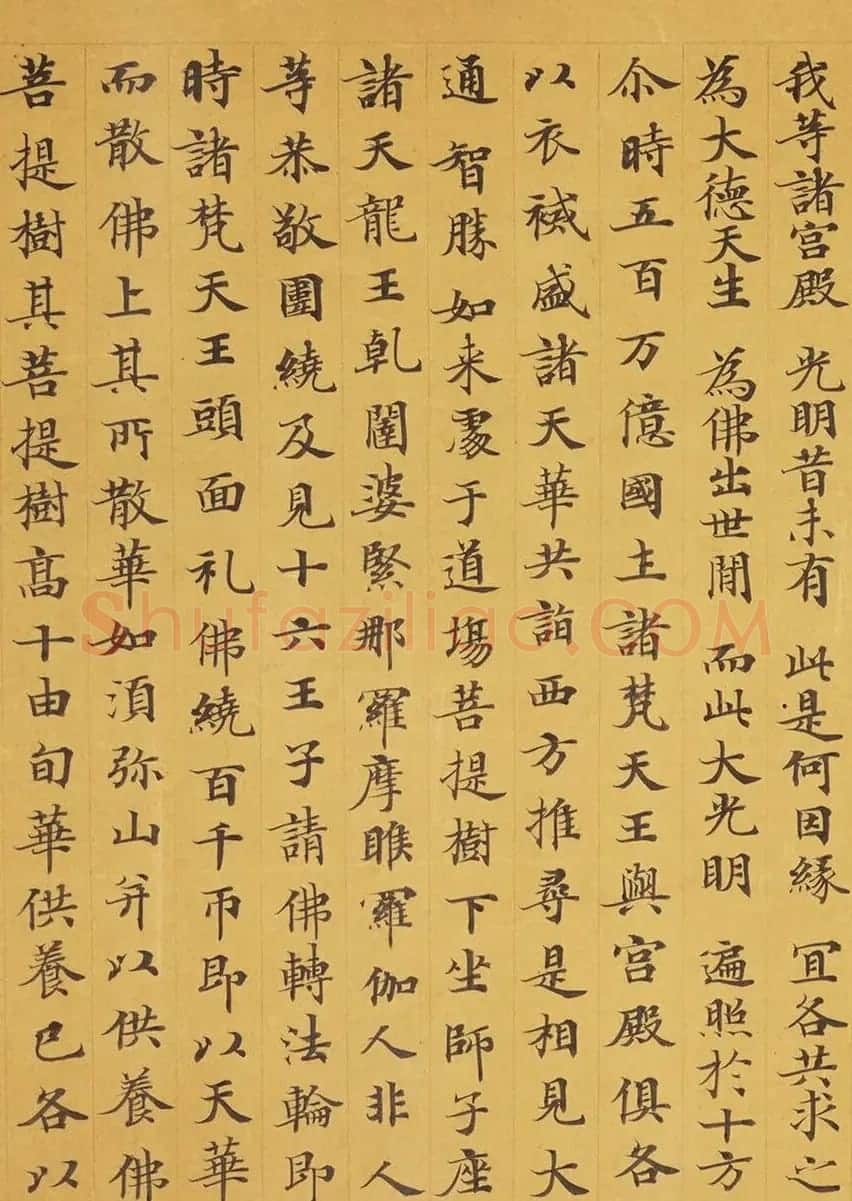 我等諸宮殿 光明昔未有 此是何因緣 冝各共求之
為大德天生 為佛出世間 而此大光明 遍照於十方
尒時五百万億國土諸梵天王與宮殿俱各
以衣裓盛諸天華共詣西方推尋是相見大
通智勝如来䖏于道場菩提樹下坐師子座
諸天龍王乹闥婆緊那羅摩睺羅伽人非人
等恭敬圍繞及見十六王子請佛轉法輪即
時諸梵天王頭面礼佛繞百千帀即以天華
而散佛上其所散華如湏弥山并以供養佛
菩提樹其菩提樹髙十由旬華供養已各以
Shufaziliao.COM